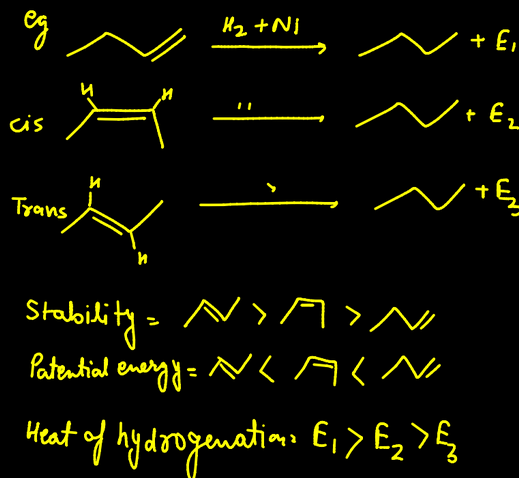 eg H2 + Ni + E1
cis H H " + E2
Trans H H + E3
Stability = > >
Potential energy = < <
Heat of hydrogenation: E1 > E2 > E3